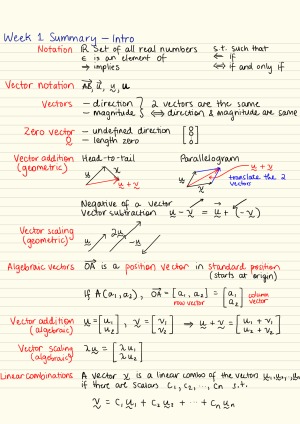 Week 1 Summary – Intro
Notation ℝ Set of all real numbers s.t. such that
∈ is an element of ⇐ if
⇒ implies ⇔ if and only if
Vector notation AB, u, u, u
Vectors – direction } 2 vectors are the same
– magnitude } ⇔ direction & magnitude are same
Zero vector – undefined direction [0 0 0]
0 – length zero
Vector addition (geometric) Head-to-tail Parallelogram
u v u+v u v u+v
translate the 2 vectors
Negative of a vector
Vector subtraction u – v = u + (-v)
Vector scaling (geometric) u 2u -u
Algebraic vectors OA is a position vector in standard position
(starts at origin)
If A(a₁,a₂), OA = [a₁, a₂] = [a₁ a₂] column vector
row vector
Vector addition (algebraic) u = [u₁ u₂], v = [v₁ v₂] ⇒ u + v = [u₁ + v₁ u₂ + v₂]
Vector scaling (algebraic) λu = [λu₁ λu₂]
Linear combinations A vector v is a linear combo of the vectors u₁, u₂, ..., uₙ
if there are scalars c₁, c₂, ..., cₙ s.t.
v = c₁u₁ + c₂u₂ + ... + cₙuₙ